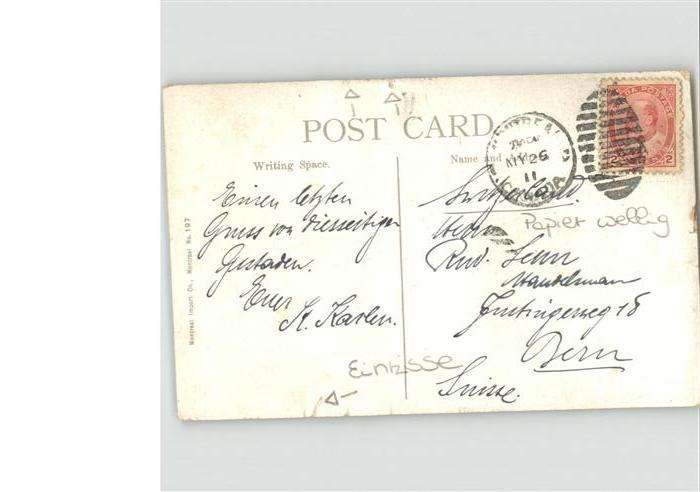 POST CARD
Writing Space.
Name and
MONTREAL
MY 26
11
CANADA
2 2
Montreal Import Co., Montreal No. 197
Einen letzten
Gruss von diesseitigen
Gestaden.
Euer
K. Karlen.
Switzerland.
Papier wellig
Herrn
Rud.
Bern
Suisse.
Einrisse